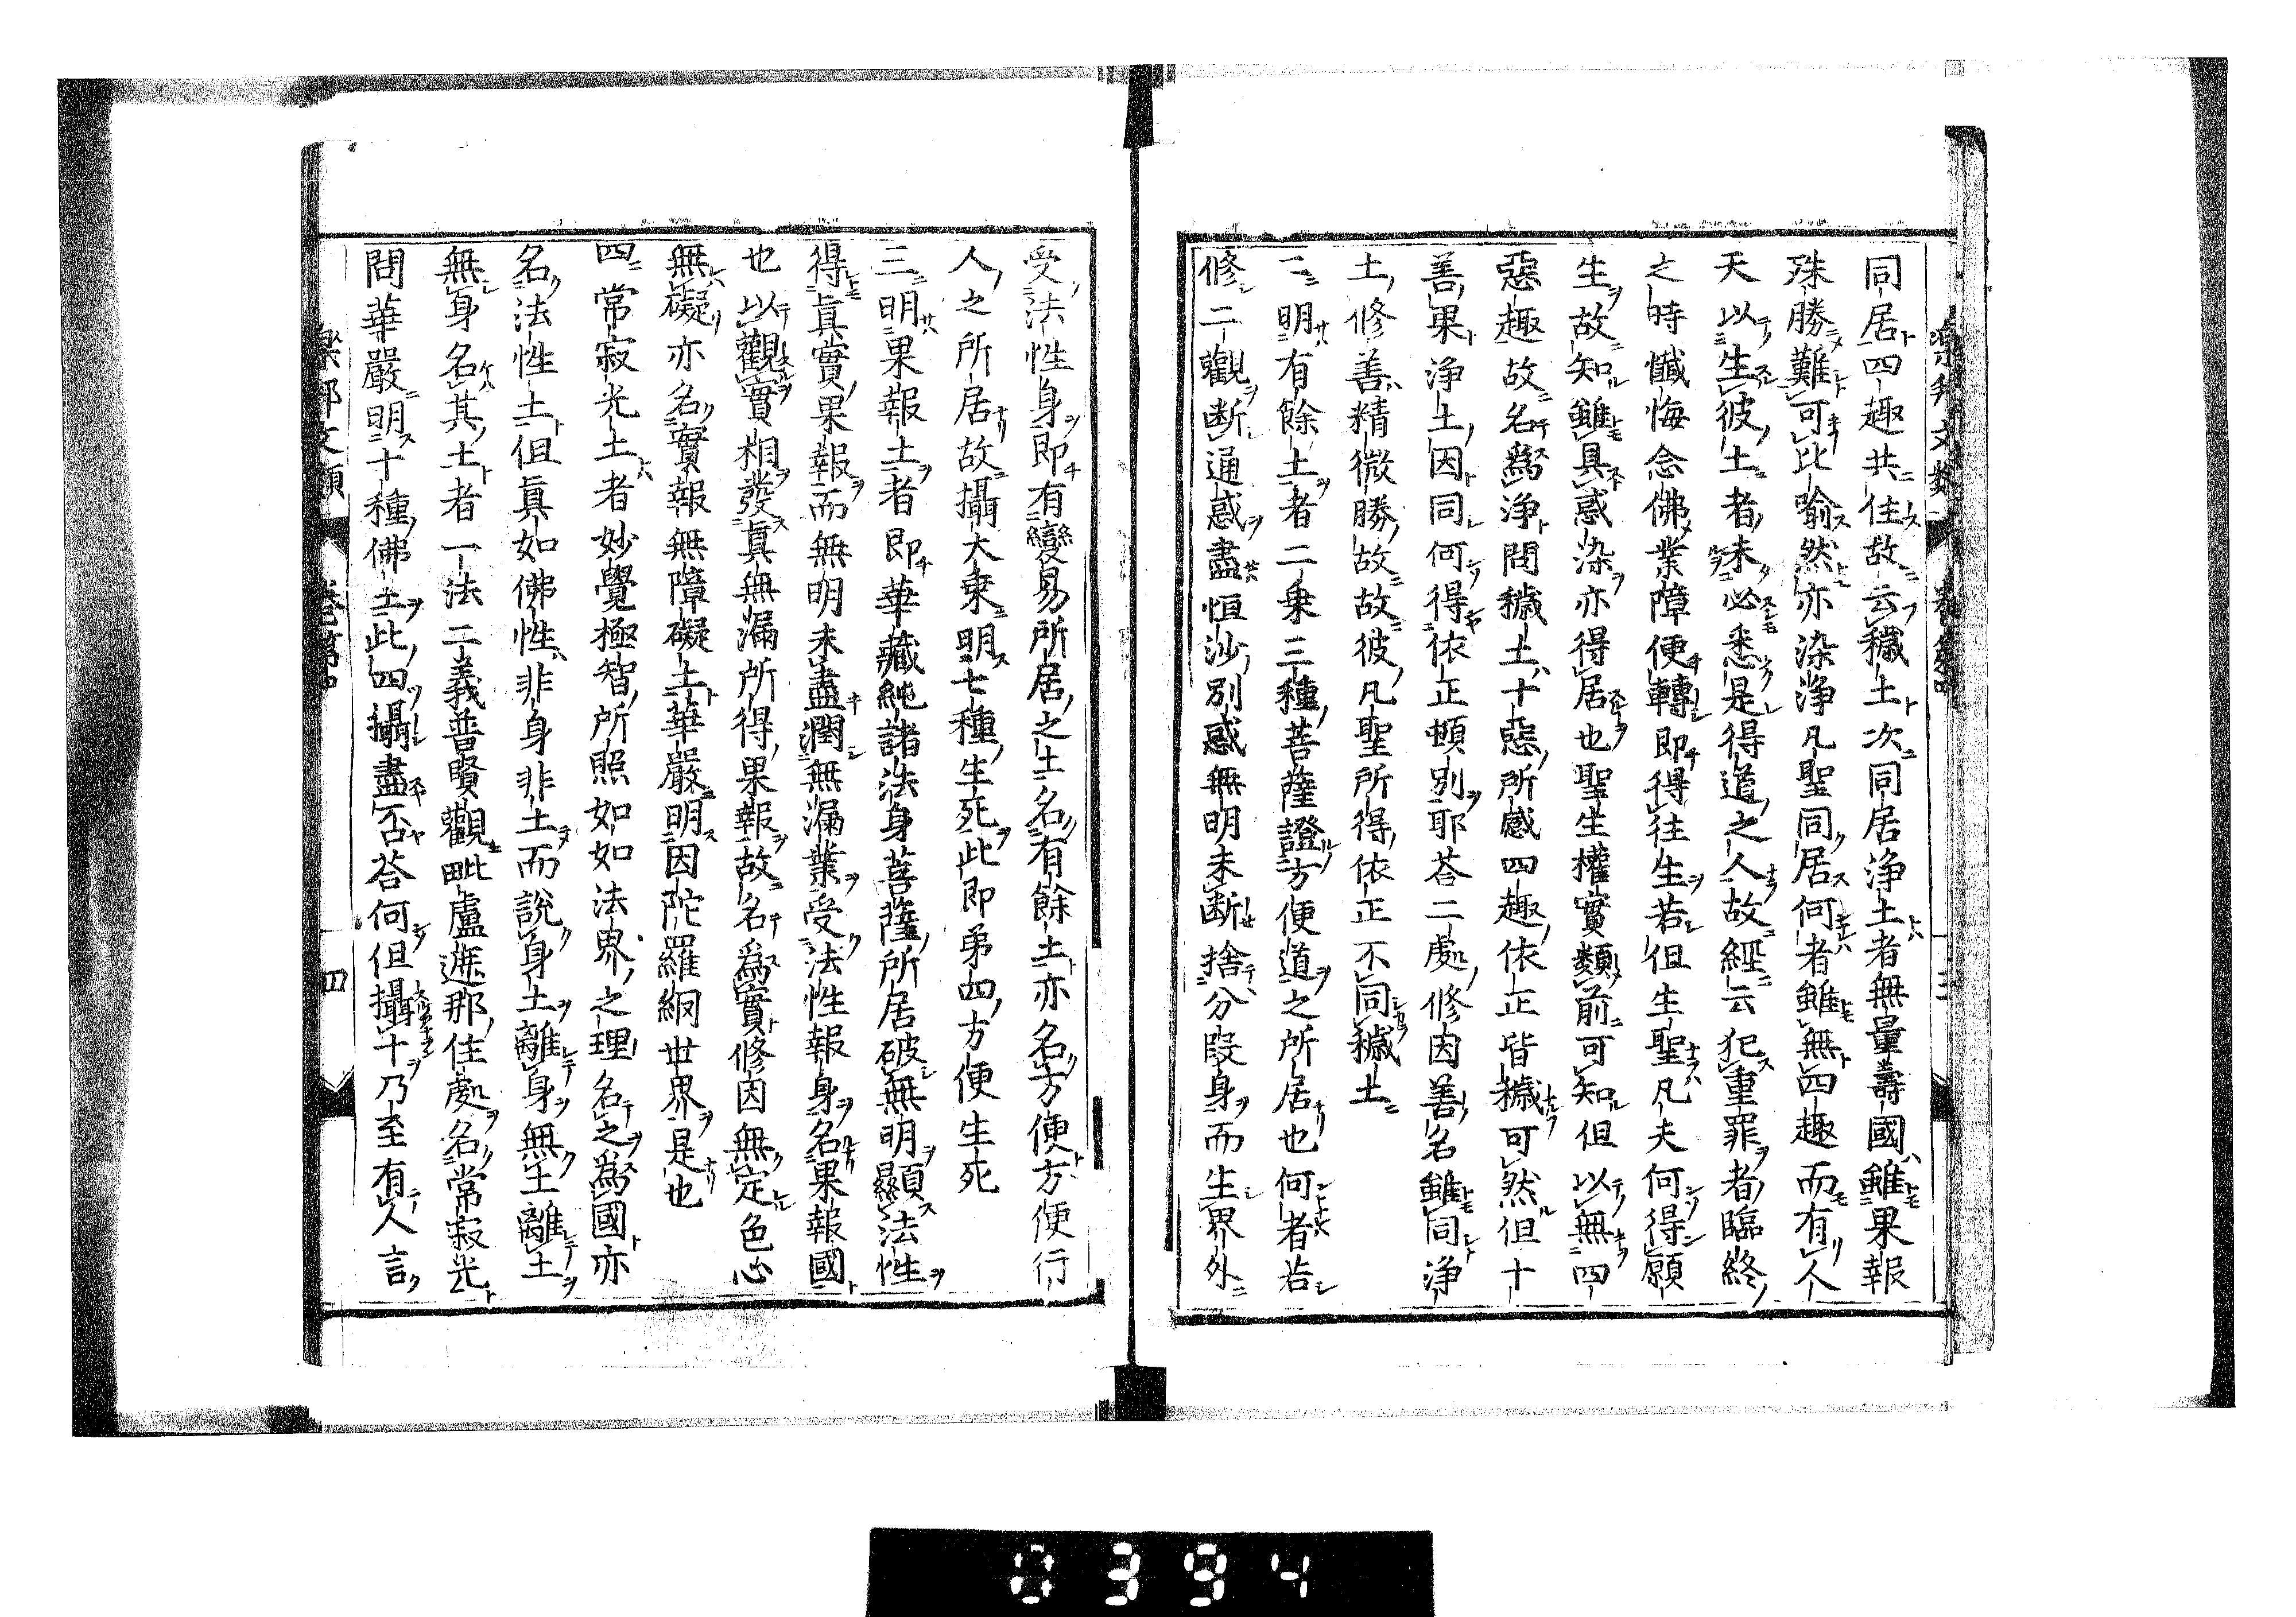 同居四趣共住故云穢土次同居淨土者無量壽國雖果報
殊勝難可比喩然亦染淨凡聖同居何者雖無四趣而有人
天以生彼土者未必悉是得道之人故經云犯重罪者臨終
之時懺悔念佛業障便轉即得往生若但生聖凡夫何得願
生故知雖具惑染亦得居也聖生權實類前可知但以無四
惡趣故名爲淨問穢土十惡所感四趣依正皆穢可然但十
善果淨土因同何得依正頓別耶荅二處修因善名雖同淨
土修善精微勝故故彼凡聖所得依正不同穢土
二明有餘土者二乗三種菩薩證方便道之所居也何者若
修二觀断通惑盡恒沙別惑無明未断捨分段身而生界外
受法性身即有變易所居之土名有餘土亦名方便方便行
人之所居故攝大乗明七種生死此即弟四方便生死
三明果報土者即華藏純諸法身菩薩所居破無明顯法性
得真實果報而無明未盡潤無漏業受法性報身名果報國
也以觀實相發真無漏所得果報故名爲實修因無定色心
無礙亦名實報無障礙土華嚴明因陀羅網世界是也
四常寂光土者妙覺極智所照如如法界之理名之爲國亦
名法性土但真如佛性非身非土而說身土離身無土離土
無身名其土者一法二義普賢觀毗盧遮那住處名常寂光
問華嚴明十種佛土此四攝盡否荅何但攝十乃至有人言
樂邦文類 卷第四 四
0394